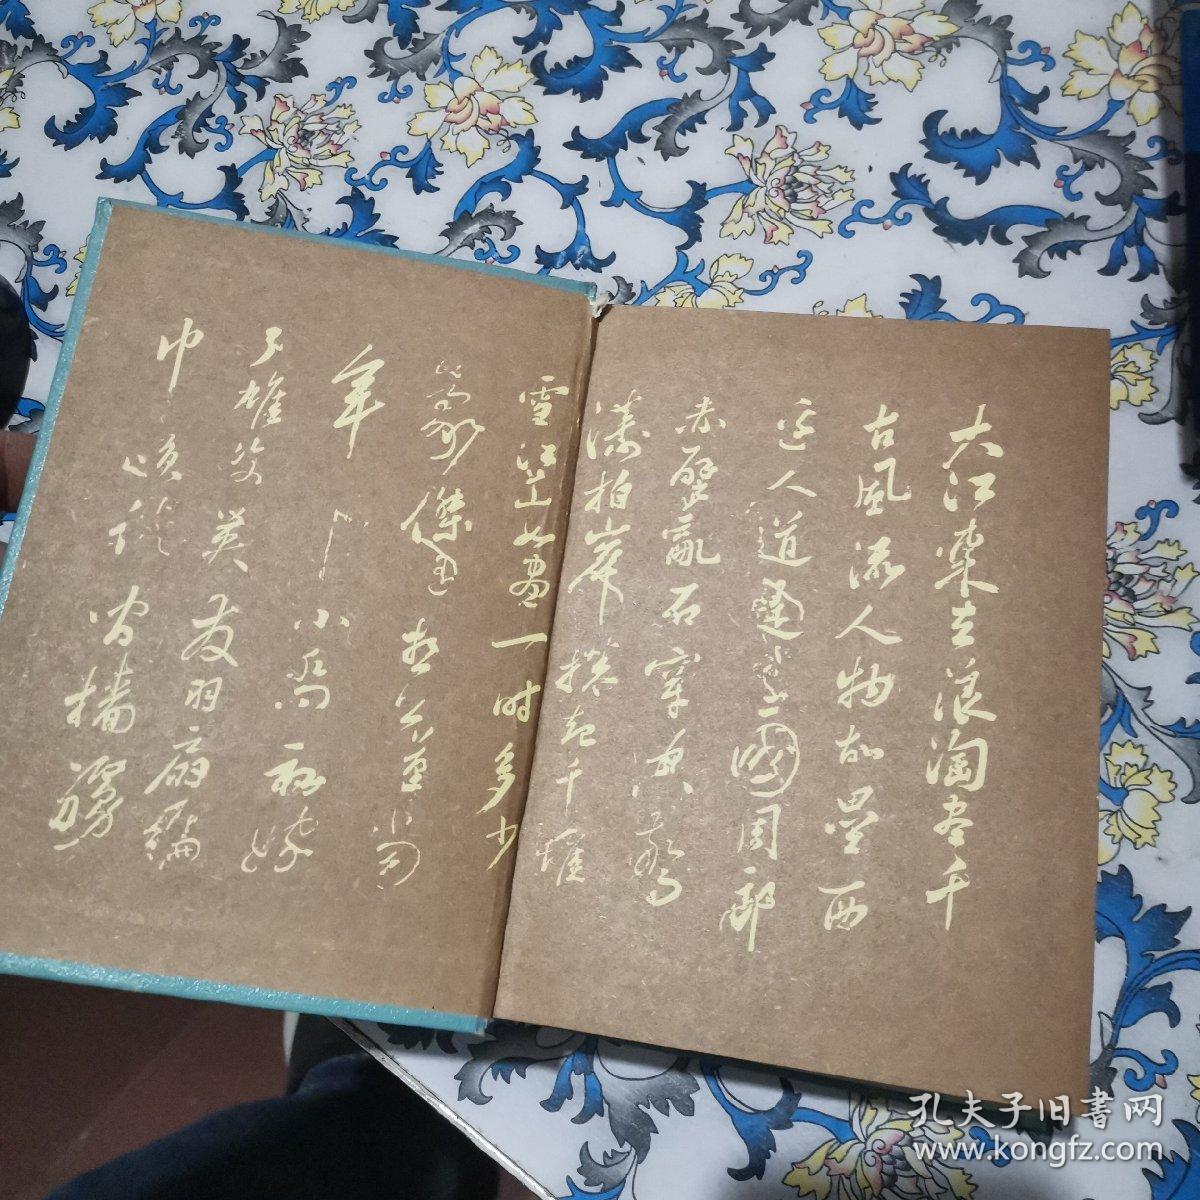 大江东去浪淘尽千
古风流人物故垒西
边人道是三国周郎
赤壁乱石穿空惊
涛拍岸捲起千堆
雪江山如画一时多少
豪杰遥想公瑾当
年小乔初嫁
了雄姿英发羽扇纶
巾谈笑间樯橹
孔夫子旧书网
www.kongfz.com